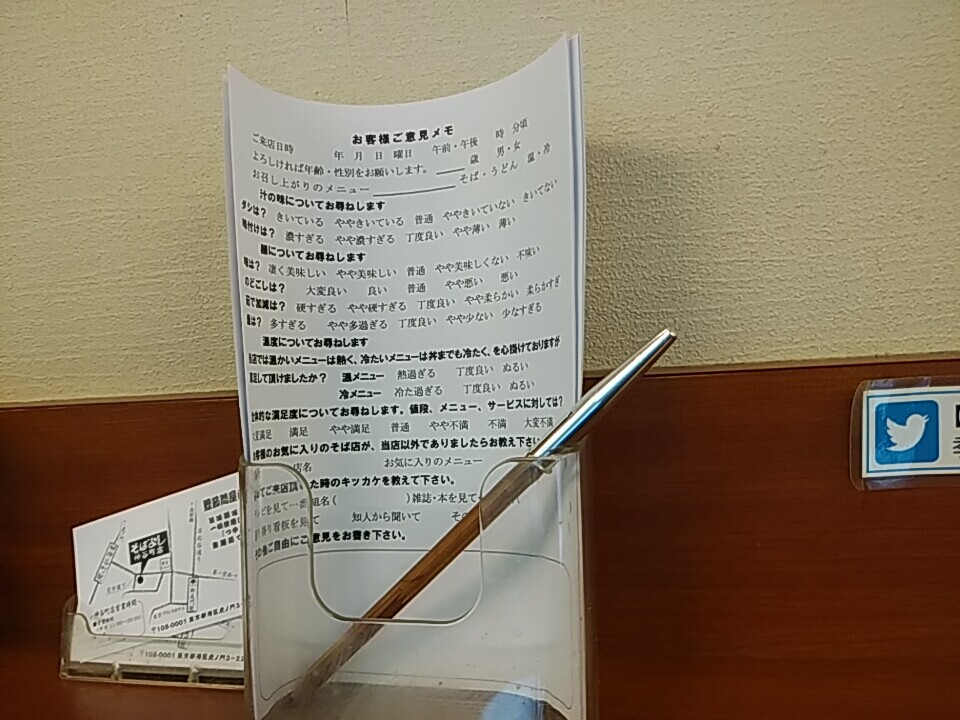 お客様ご意見メモ
ご来店日時 年 月 日 曜日 午前・午後 時 分頃
よろしければ年齢・性別をお願いします。 歳 男・女
お召し上がりのメニュー そば・うどん 温・冷
汁の味についてお尋ねします
ダシは? きいている ややきいている 普通 ややきいていない きいてない
味付けは? 濃すぎる やや濃すぎる 丁度良い やや薄い 薄い
麺についてお尋ねします
味は? 凄く美味しい やや美味しい 普通 やや美味しくない 不味い
のどごしは? 大変良い 良い 普通 やや悪い 悪い
茹で加減は? 硬すぎる やや硬すぎる 丁度良い やや柔らかい 柔らかすぎ
量は? 多すぎる やや多過ぎる 丁度良い やや少ない 少なすぎる
温度についてお尋ねします
当店では温かいメニューは熱く、冷たいメニューは丼までも冷たく、を心掛けておりますが
満足して頂けましたか? 温メニュー 熱過ぎる 丁度良い ぬるい
冷メニュー 冷た過ぎる 丁度良い ぬるい
全体的な満足度についてお尋ねします。値段、メニュー、サービスに対しては?
大変満足 満足 やや満足 普通 やや不満 不満 大変不満
お客様のお気に入りのそば店が、当店以外でありましたらお教え下さい
店名 お気に入りのメニュー
めてご来店頂いた時のキッカケを教えて下さい。
テレビを見て…番組名( )雑誌・本を見て
通り掛り看板を見て 知人から聞いて その
その他ご自由にご意見をお書き下さい。
日比谷通り
神谷町店営業時間
〒105-0001 東京都港区虎ノ門3
〒105-0001 東京都港区虎ノ門3-22